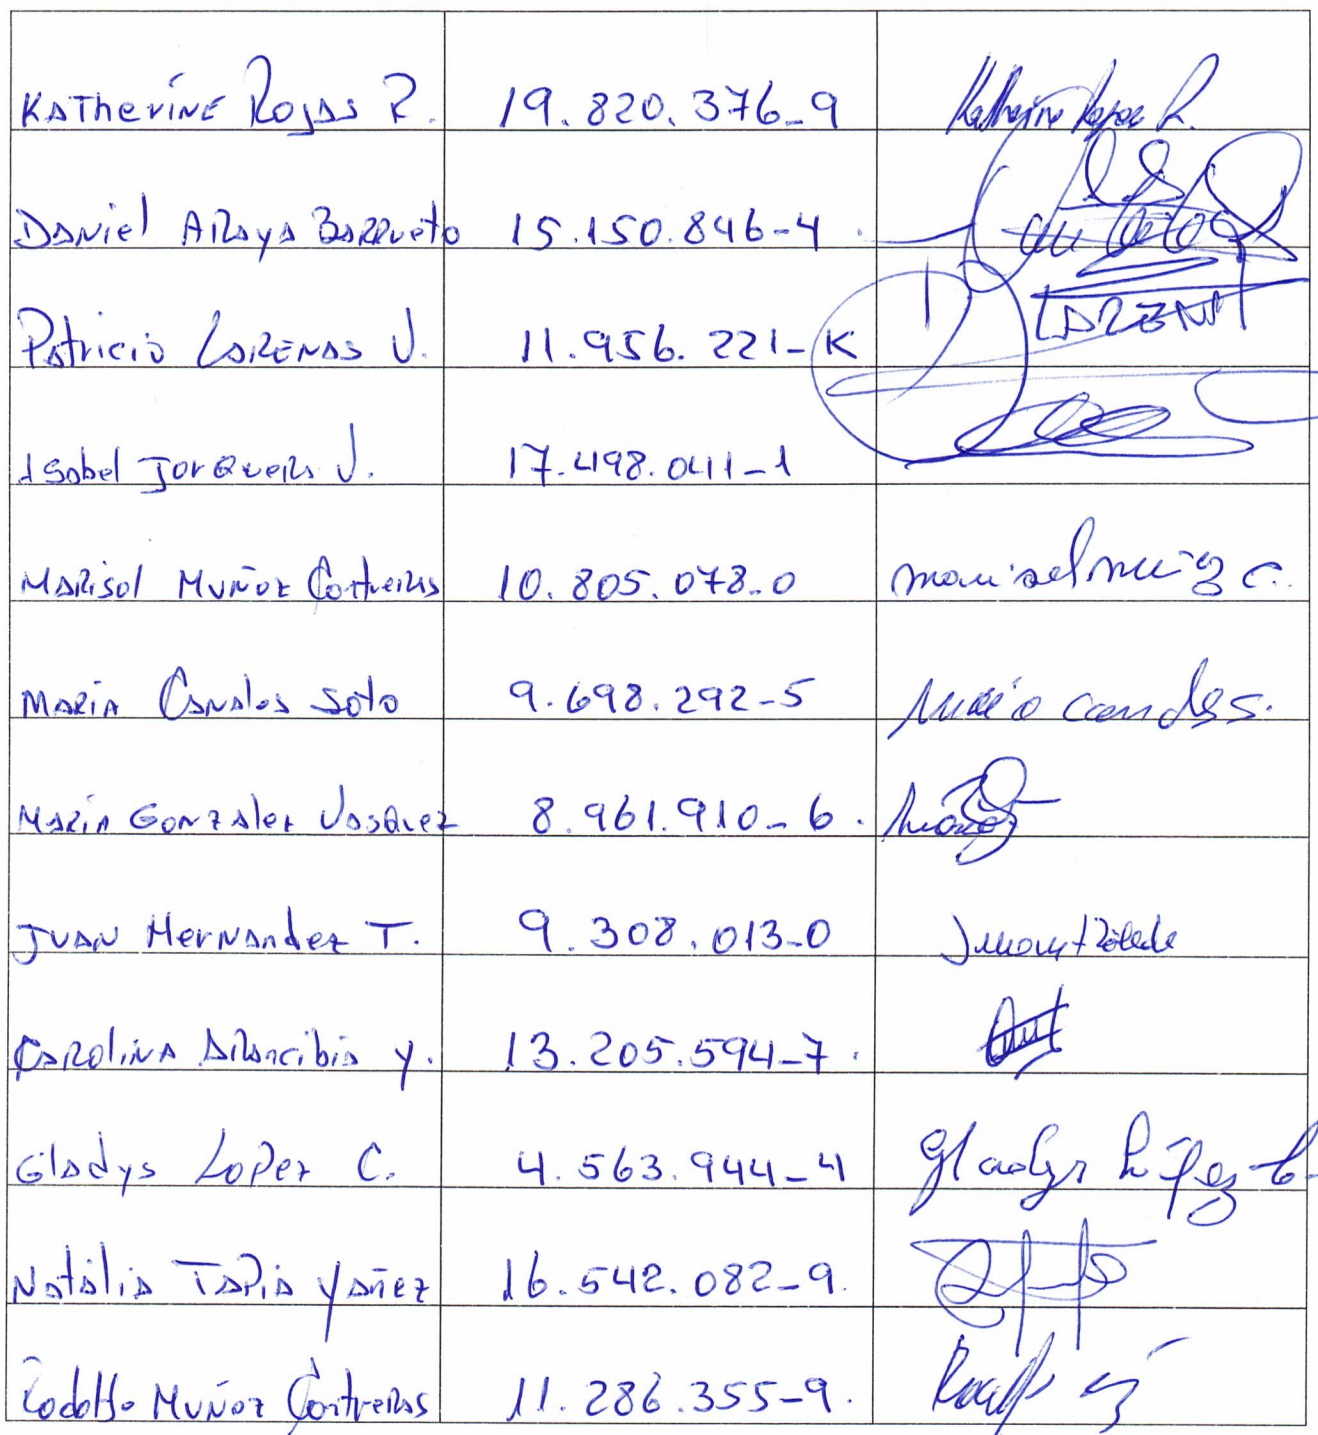 Katherine Rojas R. 19.820.376-9 Katherine Rojas R.
Daniel Araya Barrueto 15.150.846-4.
Patricio Larenas V. 11.956.221-K LARENA
Isabel Jorquera V. 17.498.041-1
Marisol Muñoz Contreras 10.805.078-0 marisol muñoz c.
Maria Canales Soto 9.698.292-5 Maria canales s.
Maria Gonzalez Vasquez 8.961.910-6.
Juan Hernandez T. 9.308.013-0
Carolina Arancibia Y. 13.205.594-7.
Gladys Lopez C. 4.563.944-4 Gladys López C.
Natalia Tapia Yañez 16.542.082-9.
Rodolfo Muñoz Contreras 11.286.355-9.